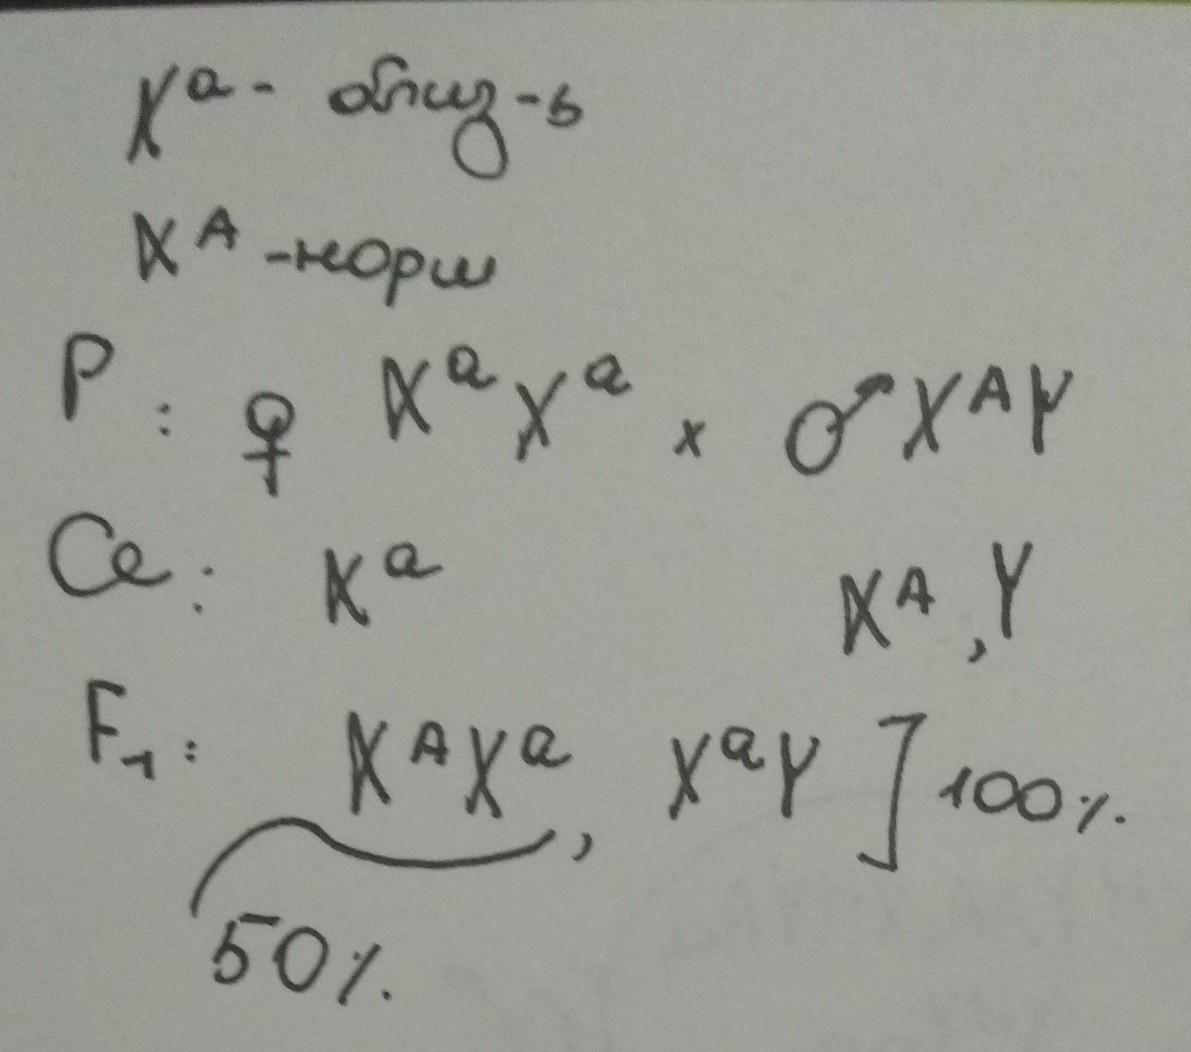 Xᵃ - близ-ь
Xᴬ - норм
P : ♀ XᵃXᵃ x ♂ XᴬY
Ce : Xᵃ Xᴬ, Y
F₁ : XᴬXᵃ, XᵃY ] 100%.
50%.